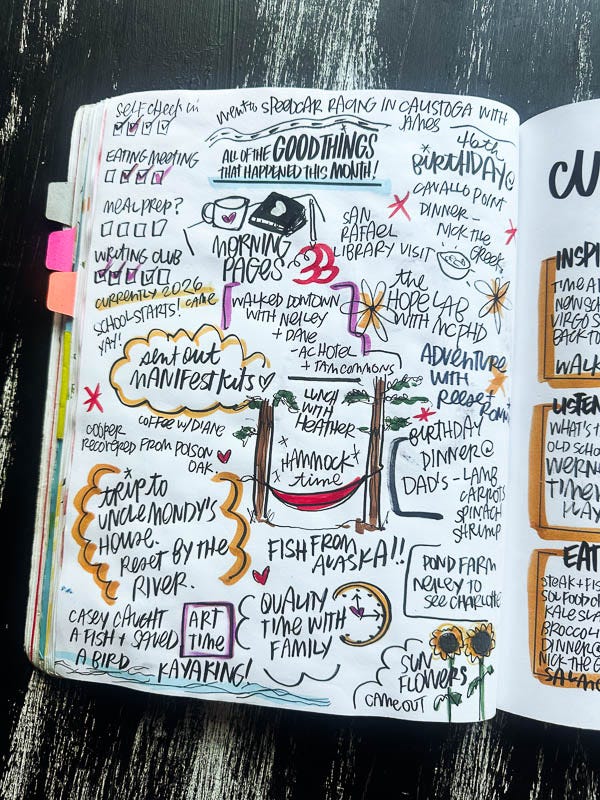 SELF CHECK in
WENT to SPEEDCAR RACING IN CALISTOGA WITH
JAMES
EATING MEETING
MEAL PREP?
WRITING CLUB
CURRENTLY 2026
CAME
SCHOOL STARTS!
YAY!
ALL OF THE GOOD THINGS
THAT HAPPENED THIS MONTH!
46th
BIRTHDAY@
CAVALLO POINT
DINNER -
NICK THE
GREEK
MORNING
PAGES
33
SAN
RAFAEL
LIBRARY VISIT
the
HOPE LAB
WITH MCPHD
WALKED DOWNTOWN
WITH NEILEY
+ DAVE
- AC HOTEL
+ TAM COMMONS
sent out
MANIFEST KITS
ADVENTURE
WITH
REESE +
ROMI
LUNCH
WITH
HEATHER
COFFEE W/ DIANE
COOPER
RECOVERED FROM POISON
OAK
HAMMOCK
time
BIRTHDAY
DINNER@
DAD'S - LAMB
CARROTS
SPINACH
SHRIMP
TRIP TO
UNCLE MONDY'S
HOUSE.
RESET BY THE
RIVER.
FISH FROM
ALASKA!!
POND FARM
NEILEY TO
SEE CHARLOTTE
CASEY CAUGHT
A FISH + SAVED
A BIRD
ART
TIME
KAYAKING!
QUALITY
TIME WITH
FAMILY
SUN
FLOWERS
CAME OUT
CU
INSPI
TIME A
NEW SCH
VIRGO S
BACK TO
WALK
LISTEN
WHAT'S
OLD SCHO
WERN
TIME
PLAY
EAT
STEAK + FIS
SOUL FOOD
KALE SLA
BROCCOLI
DINNER@
NICK THE G
SALMO